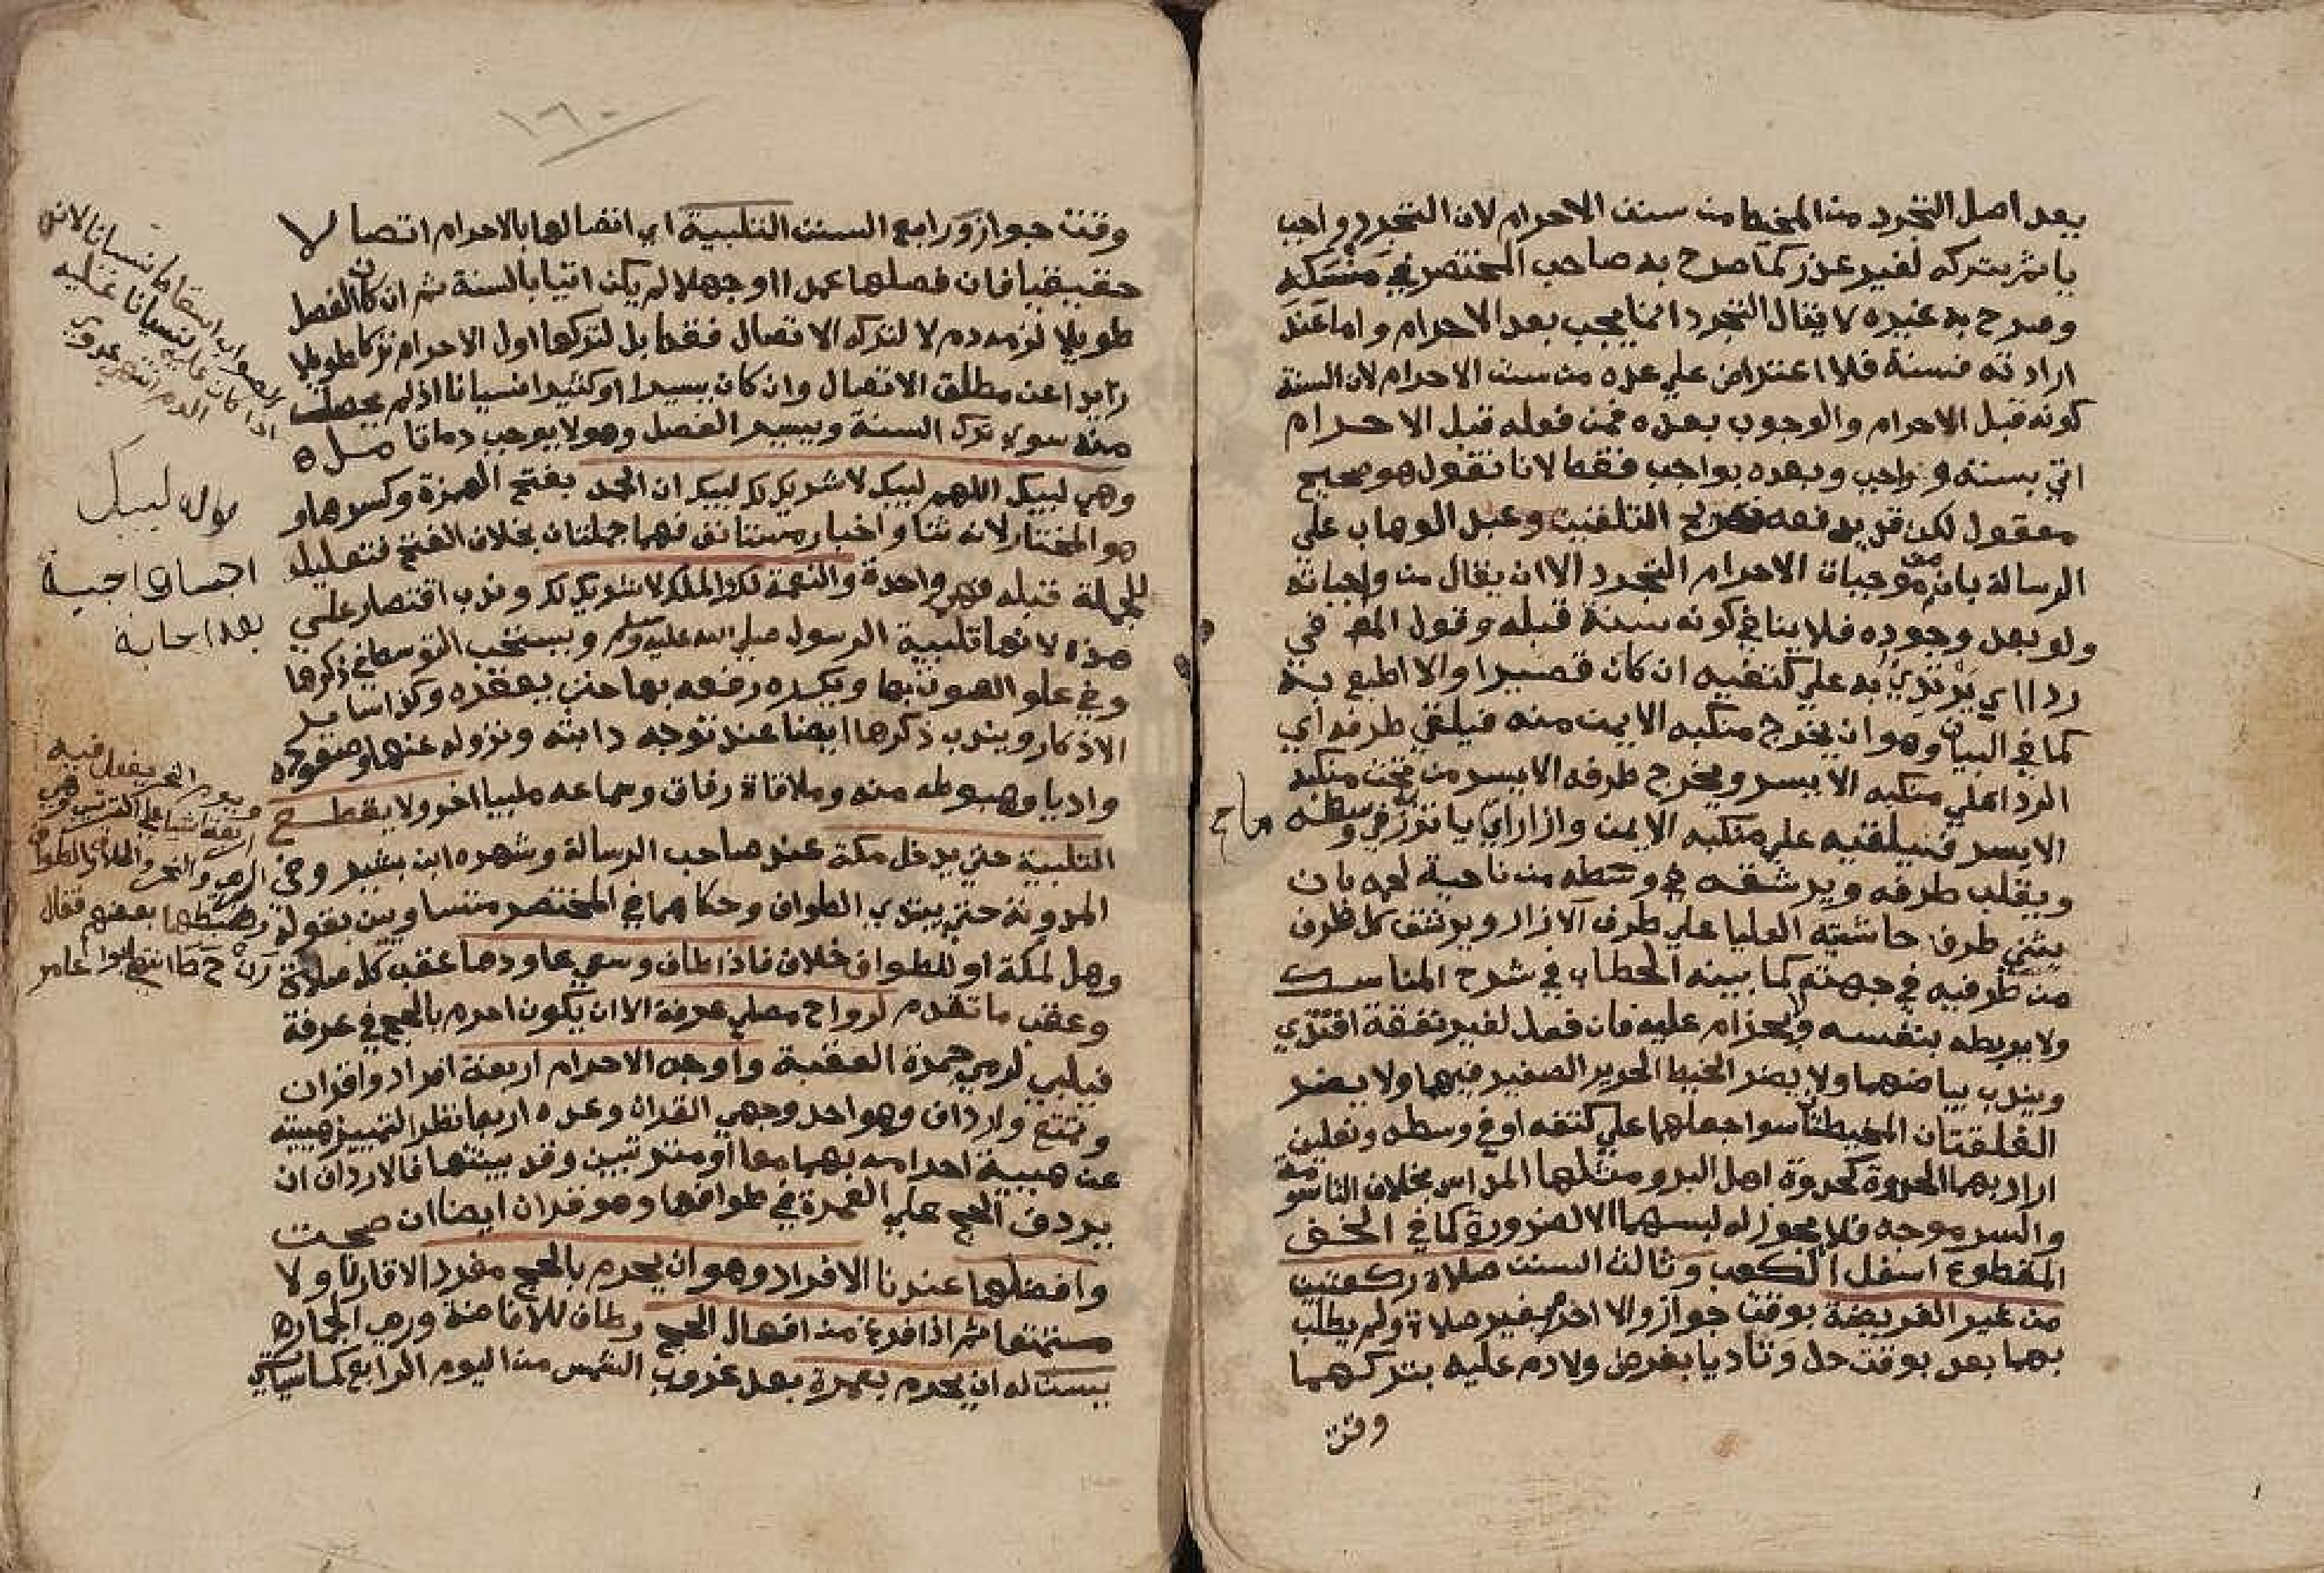 بعد اصل التجرد من المخيط من سنن الاحرام لان التجرد واجب
ياثم بتركه لغير عذر كما صرح به صاحب المختصر في منسكه
وصرح به غيره لا يقال التجرد انما يجب بعد الاحرام واما عند
ارادته فسنة فلا اعتراض علي عده من سنن الاحرام لان السنة
كونه قبل الاحرام والوجوب بعده فمن فعله قبل الاحرام
اتي بسنة وواجب وبعده بواجب فقط لانا نقول هو صحيح
معقول لكن قد يدفعه التلقين وعبد الوهاب علي
الرسالة بان من موجبات الاحرام التجرد الا ان يقال من واجباته
ولو بعد وجوده فلا ينافي كونه سنة قبله وقول المص في
ردا اي يرتدي به علي كتفيه ان كان قصيرا والا اطبع به
كما في البيان وهو ان يخرج منكبه الايمن منه فيلقي طرفه اي
الردا علي منكبه الايسر ويخرج طرفه الايسر من تحت منكبه
الايسر فيلقيه علي منكبه الايمن وازار اي ياتزر في وسطه
ويقلب طرفه ويرشقه في وسطه من ناحية لحمه بان
يثني طرف حاشيته العليا علي طرف الازار ويرشق كل طرف
من طرفيه في جهته كما بينه الحطاب في شرح المناسك
ولا يربطه بنفسه ولا بحزام عليه فان فعل لغير نفقة افتدي
ويندب بياضهما ولا يضر الخيط الحرير الصغير فيهما ولا يضر
الفلقتان المخيطتان سوا جعلهما علي كتفه او في وسطه ونعلين
اراد بهما الحدوة كحدوة اهل البدو ومثلها المداس بخلاف التاسومة
والسرموجه فلا يجوز له لبسهما الا لضرورة كما في الخف
المقطوع اسفل الكعب وثالث السنن صلاة ركعتين
من غير الفريضة بوقت جواز والا احرم بغير صلاة ولم يطلب
بهما بعد بوقت حل وتاديا بفرض ولا دم عليه بتركهما
وقت
وقت جواز ورابع السنن التلبية اي اتصالها بالاحرام اتصالا
حقيقيا فان فصلها عمدا او جهلا لم يكن اتيا بالسنة ثم ان كان الفصل
طويلا لزمه دم لا لتركه الاتصال فقط بل لتركها اول الاحرام تركا طويلا
زايدا عن مطلق الاتصال وان كان يسيرا او كثيرا نسيانا اذ لم يحصل
منه سوي ترك السنة ويسير الفصل وهو لا يوجب دما تامله
وهي لبيك اللهم لبيك لا شريك لك لبيك ان الحمد بفتح الهمزة وكسرها و
هو المختار لانه ثنا واخبار مستانف فهما جملتان بخلاف الفتح فتعليله
للجملة قبله فهي واحدة والنعمة لك والملك لا شريك لك وندب اقتصار علي
هذه لانها تلبية الرسول صلي الله عليه وسلم ويستحب التوسط في ذكرها
وفي علو الصوت بها ويكره رفعه بها حتي يعقره وكذا ساير
الاذكار ويندب ذكرها ايضا عند توجه دابته ونزوله عنها وصعوده
واديا وهبوطه منه وملاقاة رفاق وسماعه ملبيا اخر ولا يقطع
التلبية حتي يدخل مكة عند صاحب الرسالة وشهره ابن بشير وفي
المدونة حتي يبتدي الطواف وحكاهما في المختصر متساويين بقوله
وهل لمكة او للطواف خلاف فاذا طاف وسعي عاودها عقب كل صلاة
وعقب ما تقدم لرواح مصلي عرفة الا ان يكون احرم بالحج في عرفة
فيلبي لرمي جمرة العقبة واوجه الاحرام اربعة افراد واقران
وتمتع وارداف وهو احد وجهي القران وعده اربعا نظرا لتمييز هيئته
عن هيئة احرامه بهما معا او مترتبين وقد بينتها فالارداف ان
يردف الحج علي العمرة في طوافها وهو قران ايضا ان صحت
وافضلها عندنا الافراد وهو ان يحرم بالحج مفردا لا قارنا ولا
متمتعا ثم اذا فرغ من افعال الحج وطاف للافاضة ورمي الجمار
يسن له ان يحرم بعمرة بعد غروب الشمس من اليوم الرابع كما سياتي
قوله لبيك
اجبناك اجبية
بعد اجابة